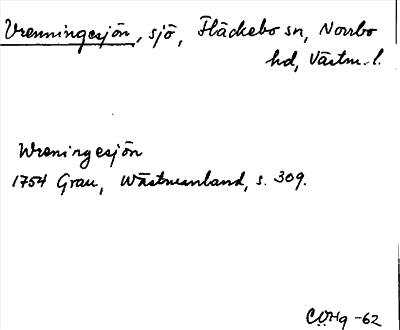 Vrenningesjön, sjö, Fläckebo sn, Norrbo
hd, Västm. l.
Wreningesjön
1754 Grau, Wästmanland, s. 309.
CÖHg -62